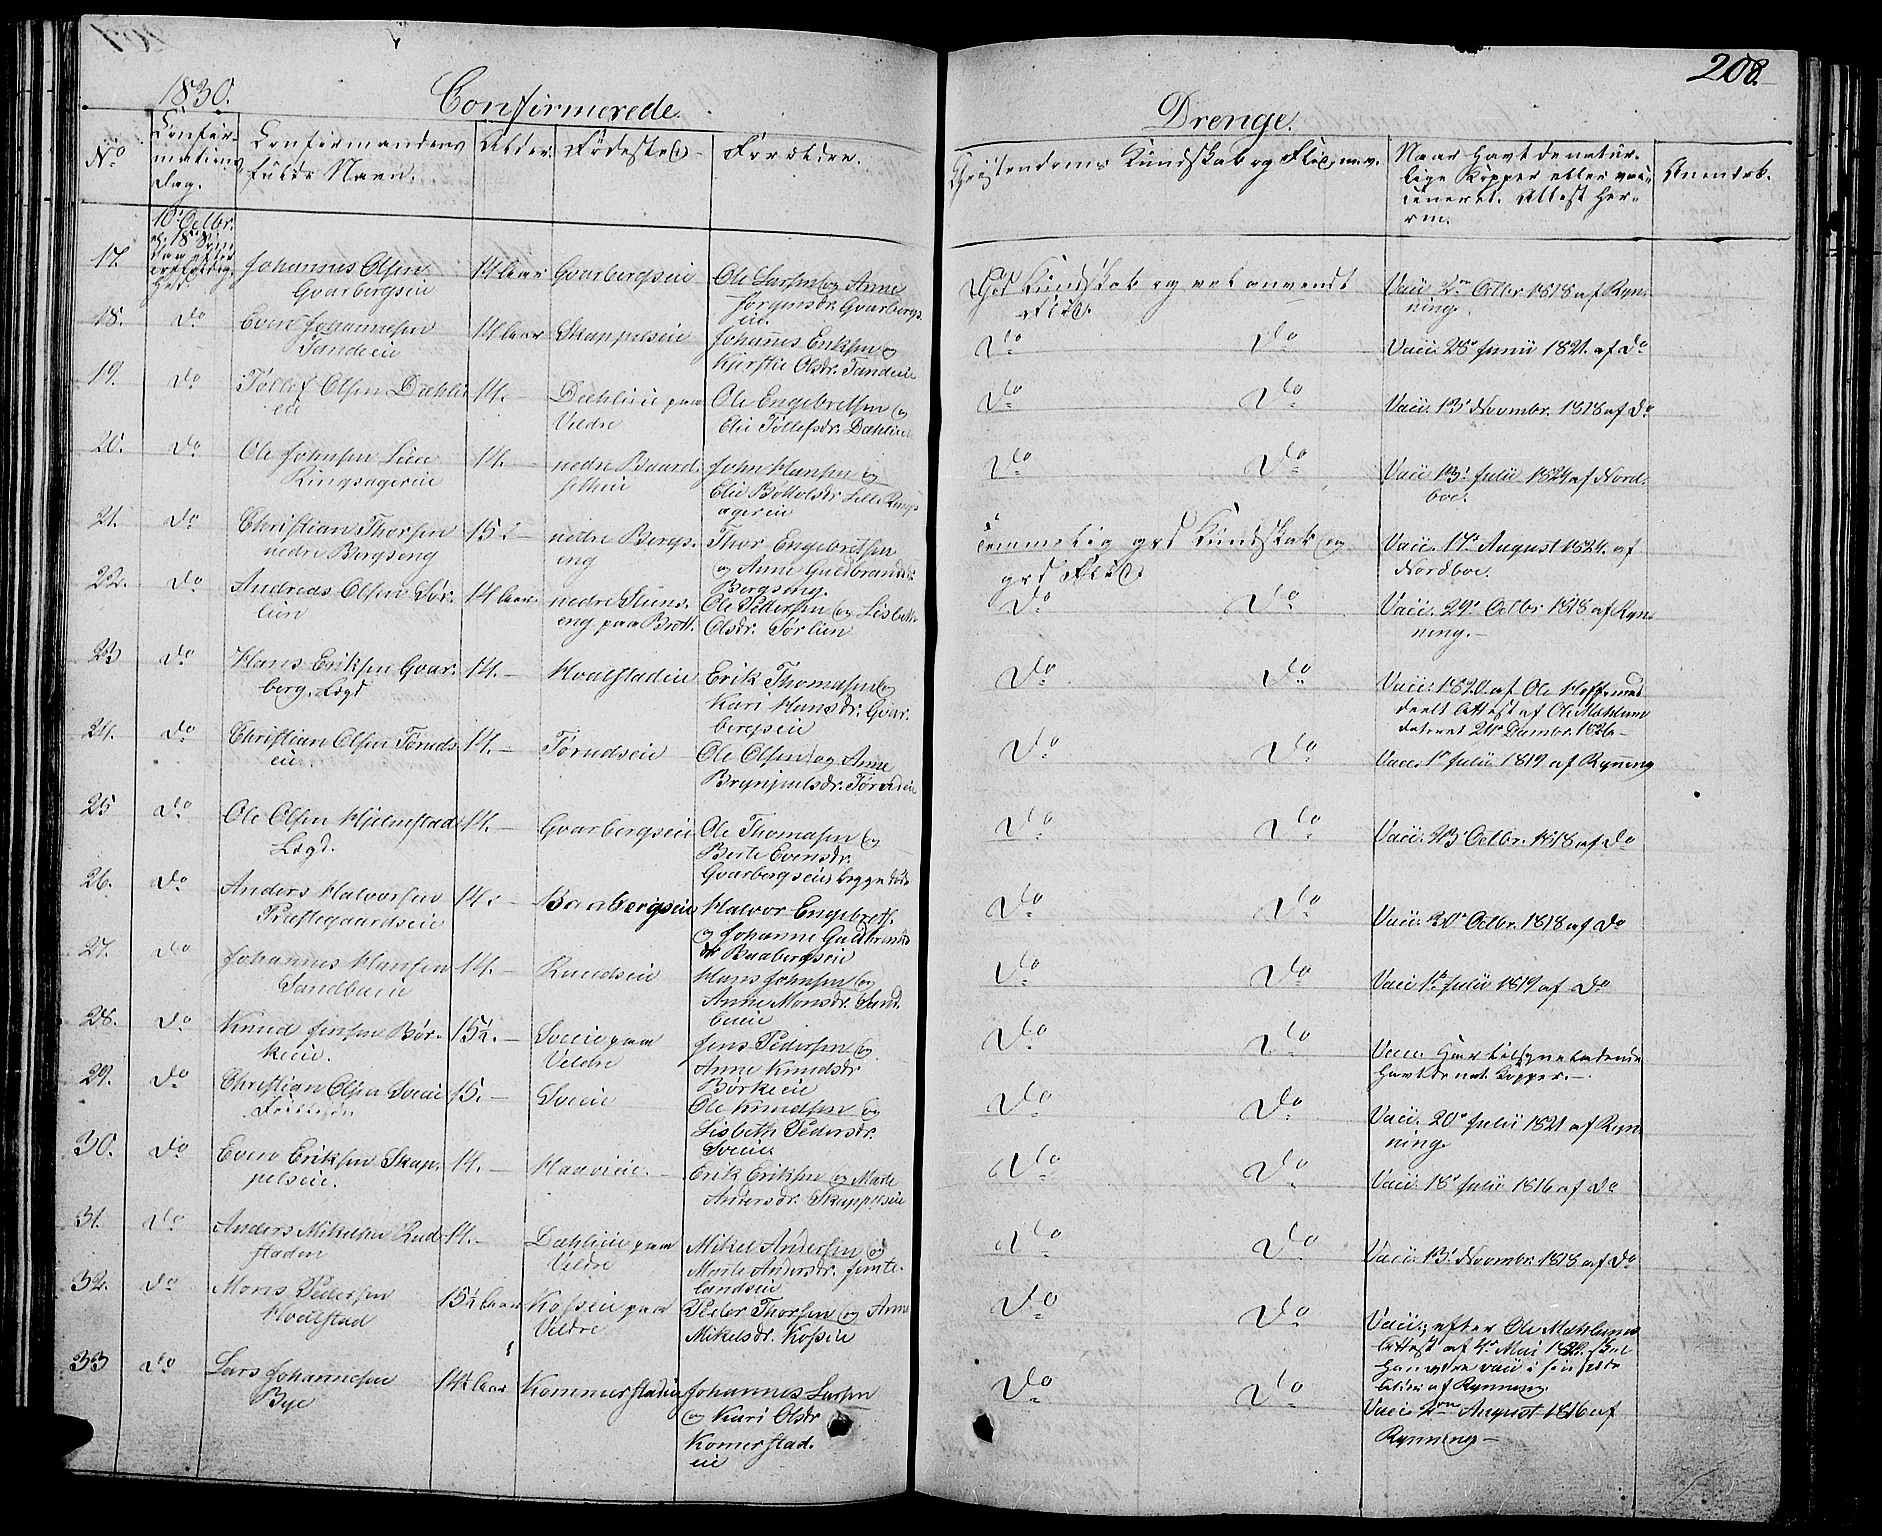 208.
1830. Confirmerede Drenge.
No
Confir-
mations
Dag.
Confirmandens
fulde Navn.
Alder.
Fødested.
Forældre.
Christendoms Kundskab og Flid, m.v.
Naar havt de natur-
lige Kopper eller vac-
cineret. Attest her-
om.
Anmærk.
10de Octbr.
17. Johannes Olsen
Gvarbergseie
14 Aar
Gvarbergseie
Ole Larsen og Anne
Jørgensdr. Gvarbergs
eie.
God Kundskab og vel anvendt
Flid.
Vacc. 2den Octbr. 1818 af Ryn-
ning.
18. Do Even Johannesen
Tandeeie
14 Aar
Skappelseie
Johannes Eriksen og
Kjerstie Olsdr. Tandeeie
Do Do
Vacc. 28de Junii 1821. af Do
19. Do Tollef Olsen Dæhlie
eie
14. -
Dæhlieie paa
Veldre
Ole Engebretsen og
Olie Tollefsdr. Dæhlieeie
Do Do
Vacc. 13de Novembr. 1818 af Do
20. Do Ole Johnsen Lille
Ringsagereie
14. -
nedre Baard-
settheie
John Hansen og
Olie Botolsdr. Lille Rings
agereie
Do Do
Vacc. 13de Julii 1824 af Nord-
boe.
21. Do Christian Thorsen
nedre Bergseng
15½ -
nedre Bergs-
eng
Thor Engebretsen
og Anne Guldbrandsdr.
Bergseng.
Temmelig god Kundskab og
god Flid.
Vacc. 17de August 1824. af
Nordboe.
22. Do Andreas Olsen Sør-
lien
14 Aar.
nedre Stens-
eng paa Brøtt.
Ole Pedersen og Lisbeth
Olsdr. Sørlien
Do Do
Vacc. 29de Octbr. 1818 af Ryn-
ning. -
23 Do Hans Eriksen Gvar-
berg. Lægd
14. -
Hvalstadeie
Erik Thomasen og
Kari Hansdr. Gvar-
bergseie
Do Do
Vacc. 1820. af Ole Hoff. med
deelt Attest af Ole Mæhlum
dateret 21de Decembr. 1826 -
24. Do Christian Olsen Toruds
eie.
14. -
Torudseie
Ole Olsen og Anne
Brynjulsdr. Torudseie
Do Do
Vacc. 1de Julii 1819 af Rynning
25 Do Ole Olsen Hjelmstad
Lægd.
14. -
Gvarbergseie
Ole Thomasen og
Berte Evensdr.
Gvarbergseie, begge døde
Do Do
Vacc. 23de Octbr. 1818 af Do
26. Do Anders Halvorsen
Præstegaardseie
14. -
Baabergseie
Halvor Engebreth.
og Johanne Guldbrands
dr. Baabergseie
Do Do
Vacc. 30de Octbr. 1818 af Do
27. Do Johannes Hansen
Sandbaeie
14. -
Rundseie
Hans Johnsen og
Anne Monsdr. Sand-
baeie
Do Do
Vacc. 1de Julii 1819 af Do
28. Do Knud Jensen Bør-
keeie.
15½. -
Sveeie paa
Veldre
Jens Pedersen og
Anne Knudsdr.
Børkeeie
Do Do
Vacc. Har tilsyneladende
havt de nat. Kopper. -
29. Do Christian Olsen Sveeie
15. -
Sveeie
Ole Knudsen og
Lisbeth Pedersdr.
Sveeie
Do Do
Vacc. 20de Julii 1821 af Ryn-
ning.
30. Do Even Eriksen Skap-
pelseie.
14. -
Haavieie. -
Erik Eriksen og Marte
Andersdr. Skappelseie
Do Do
Vacc. 18de Julii 1816 af Do
31. Do Anders Mikelsen Rud-
staden
14. -
Dæhlieie paa
Veldre
Mikel Andersen og
Marte Andersdr. Jemte-
landseie
Do Do
Vacc. 13de Novembr. 1818 af Do
32. Do Mons Pedersen
Hvalstad
15½ Aar
Kosseie paa
Veldre
Peder Thorsen og Anne
Mikelsdr. Kosseie
Do Do
Vacc. efter Ole Mæhlums
Attest af 4de Mai skal
han være vacc. i sin
Alder af Rynning.
33 Do Lars Johannesen
Bye
14½ Aar
Kommerstadeie
Johannes Larsen
og Kari Olsdr.
Komerstad-
eie
Do Do
Vacc. 2den August 1816 af
Rynning -